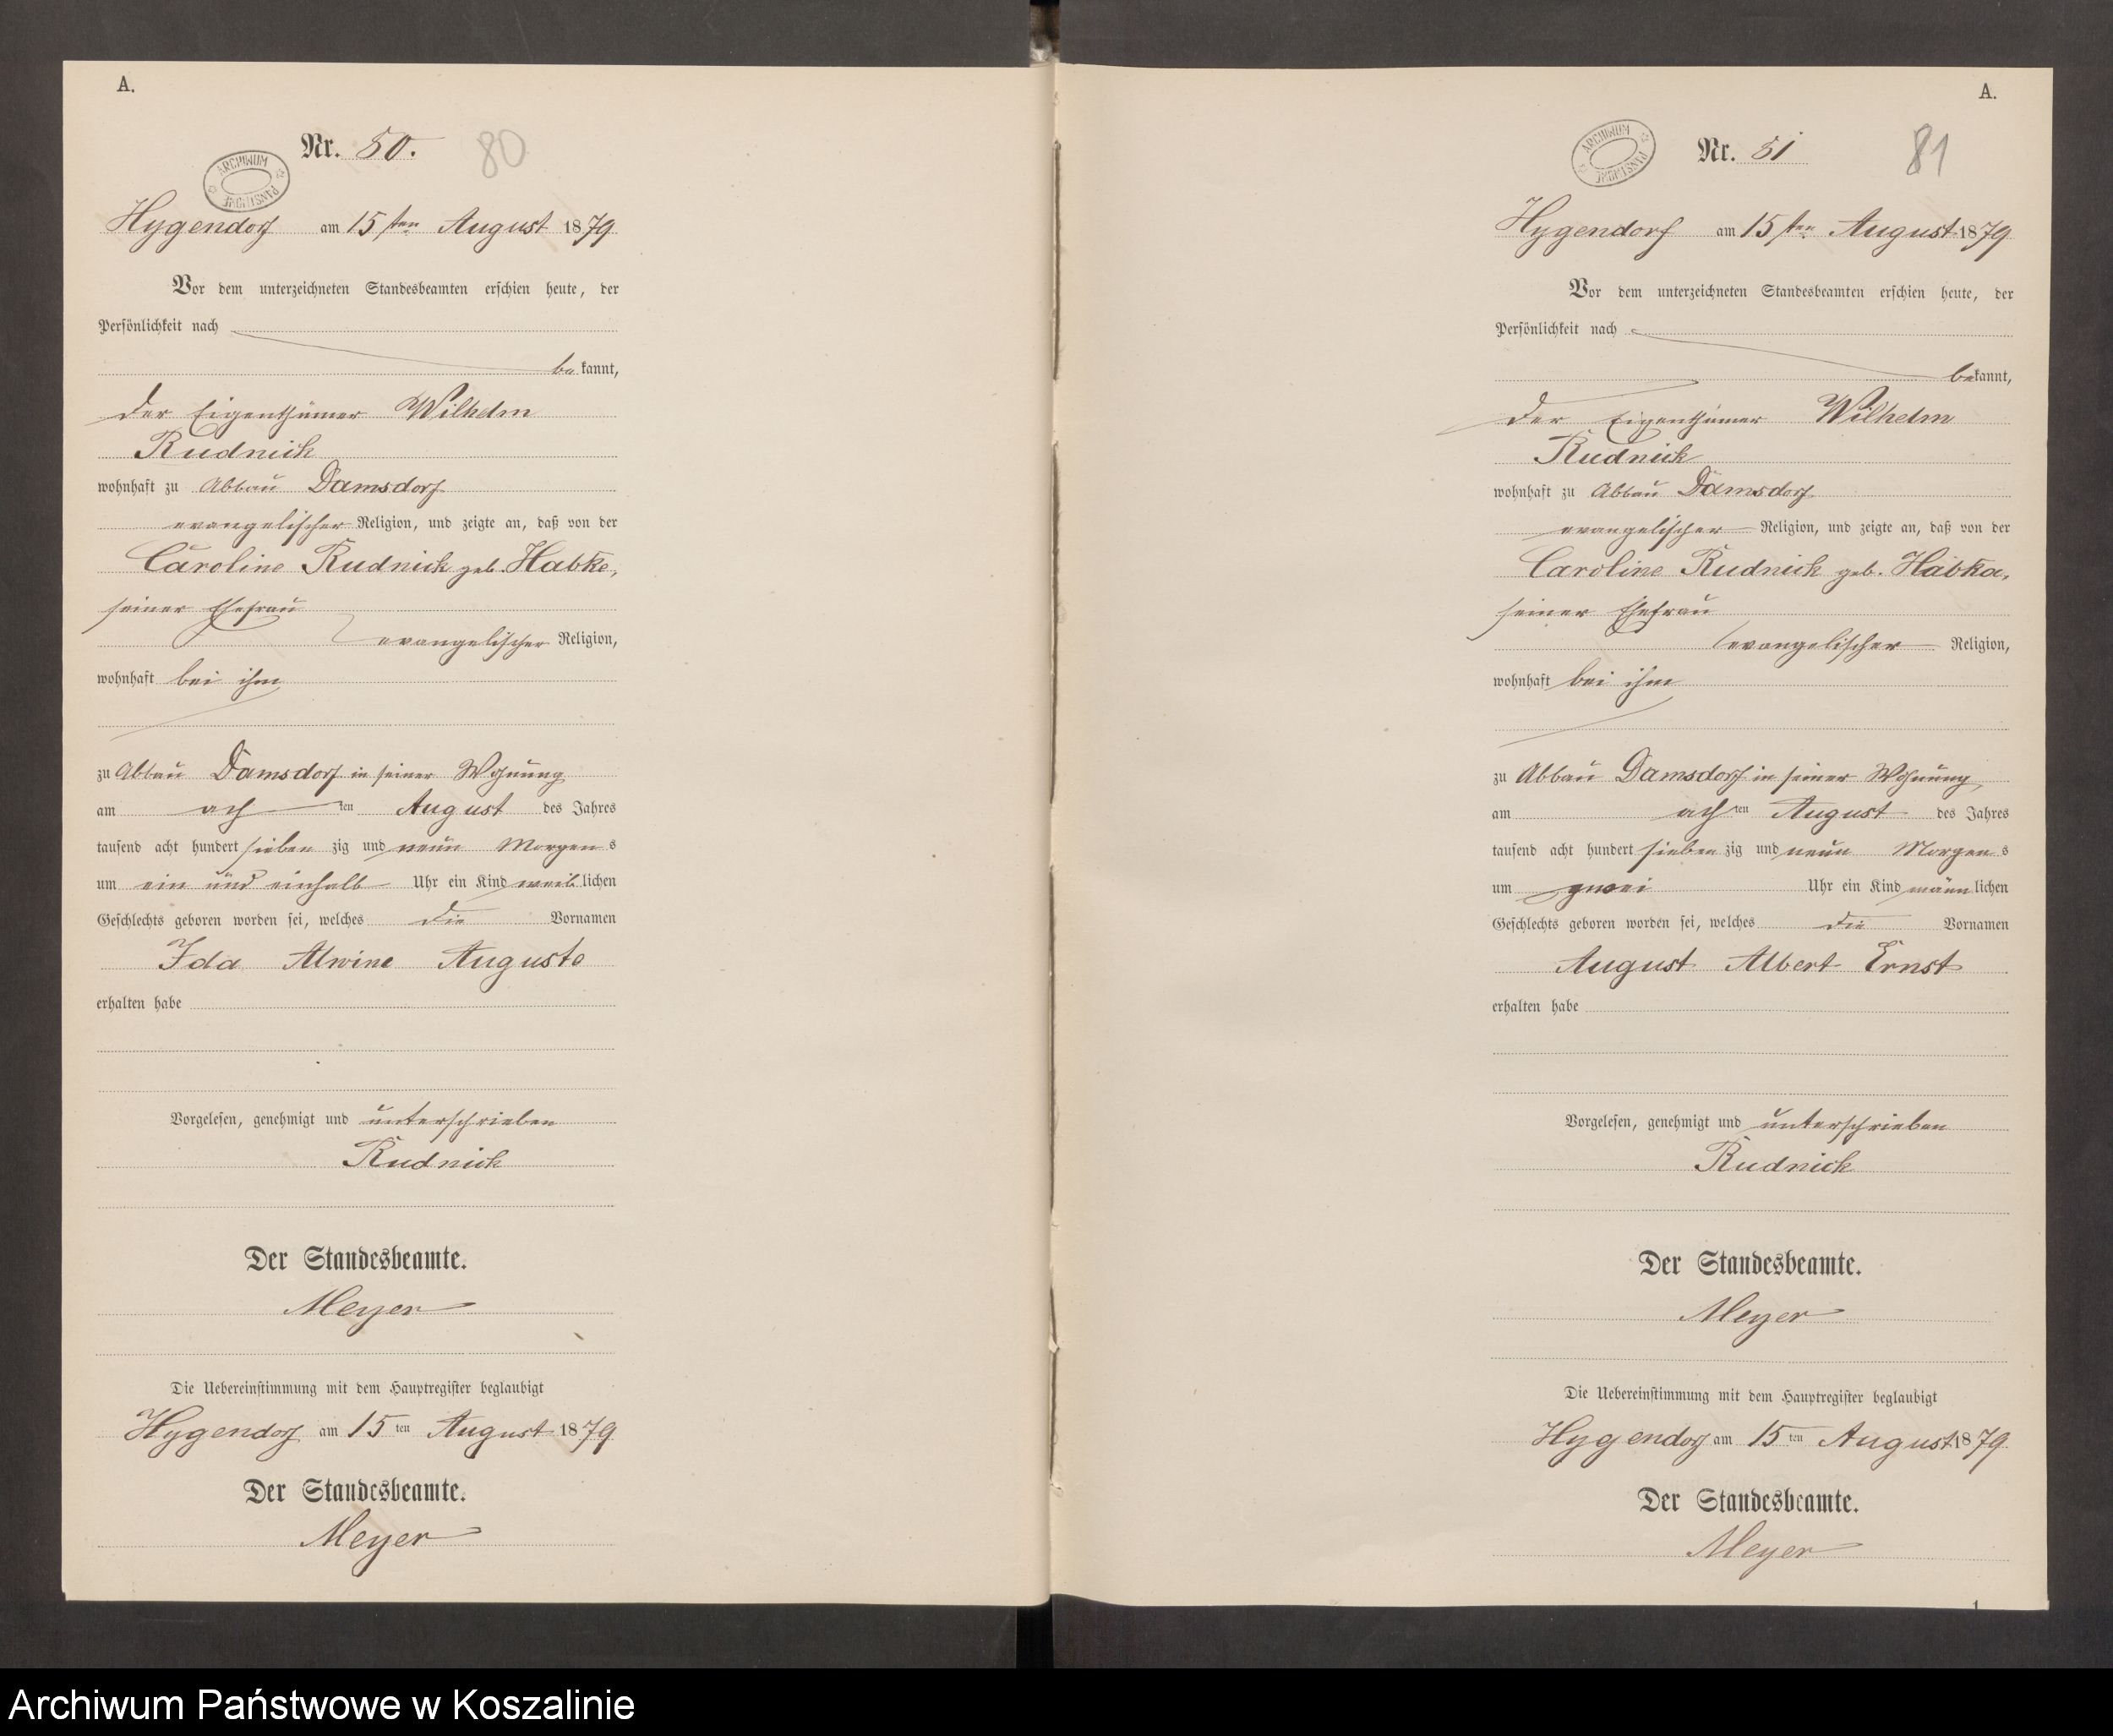 A.
Nr. 50. 80
ARCHIWUM PAŃSTWOWE
Hygendorf am 15ten August 1879
Vor dem unterzeichneten Standesbeamten erschien heute, der
Persönlichkeit nach
bekannt,
der Eigenthümer Wilhelm
Rudnick
wohnhaft zu Abbau Damsdorf
evangelischer Religion, und zeigte an, daß von der
Caroline Rudnick geb. Habke,
seiner Ehefrau
evangelischer Religion,
wohnhaft bei ihm
zu Abbau Damsdorf in seiner Wohnung
am achten August des Jahres
tausend acht hundert siebenzig und neun Morgens
um ein und einhalb Uhr ein Kind weiblichen
Geschlechts geboren worden sei, welches die Vornamen
Ida Alwine Auguste
erhalten habe
Vorgelesen, genehmigt und unterschrieben
Rudnick
Der Standesbeamte.
Meyer
Die Uebereinstimmung mit dem Hauptregister beglaubigt
Hygendorf am 15ten August 1879
Der Standesbeamte.
Meyer
A.
Nr. 51 81
ARCHIWUM PAŃSTWOWE
Hygendorf am 15ten August 1879
Vor dem unterzeichneten Standesbeamten erschien heute, der
Persönlichkeit nach
bekannt,
der Eigenthümer Wilhelm
Rudnick
wohnhaft zu Abbau Damsdorf
evangelischer Religion, und zeigte an, daß von der
Caroline Rudnick geb. Habke,
seiner Ehefrau
evangelischer Religion,
wohnhaft bei ihm
zu Abbau Damsdorf in seiner Wohnung
am achten August des Jahres
tausend acht hundert siebenzig und neun Morgens
um zwei Uhr ein Kind männlichen
Geschlechts geboren worden sei, welches die Vornamen
August Albert Ernst
erhalten habe
Vorgelesen, genehmigt und unterschrieben
Rudnick
Der Standesbeamte.
Meyer
Die Uebereinstimmung mit dem Hauptregister beglaubigt
Hygendorf am 15ten August 1879
Der Standesbeamte.
Meyer
Archiwum Państwowe w Koszalinie